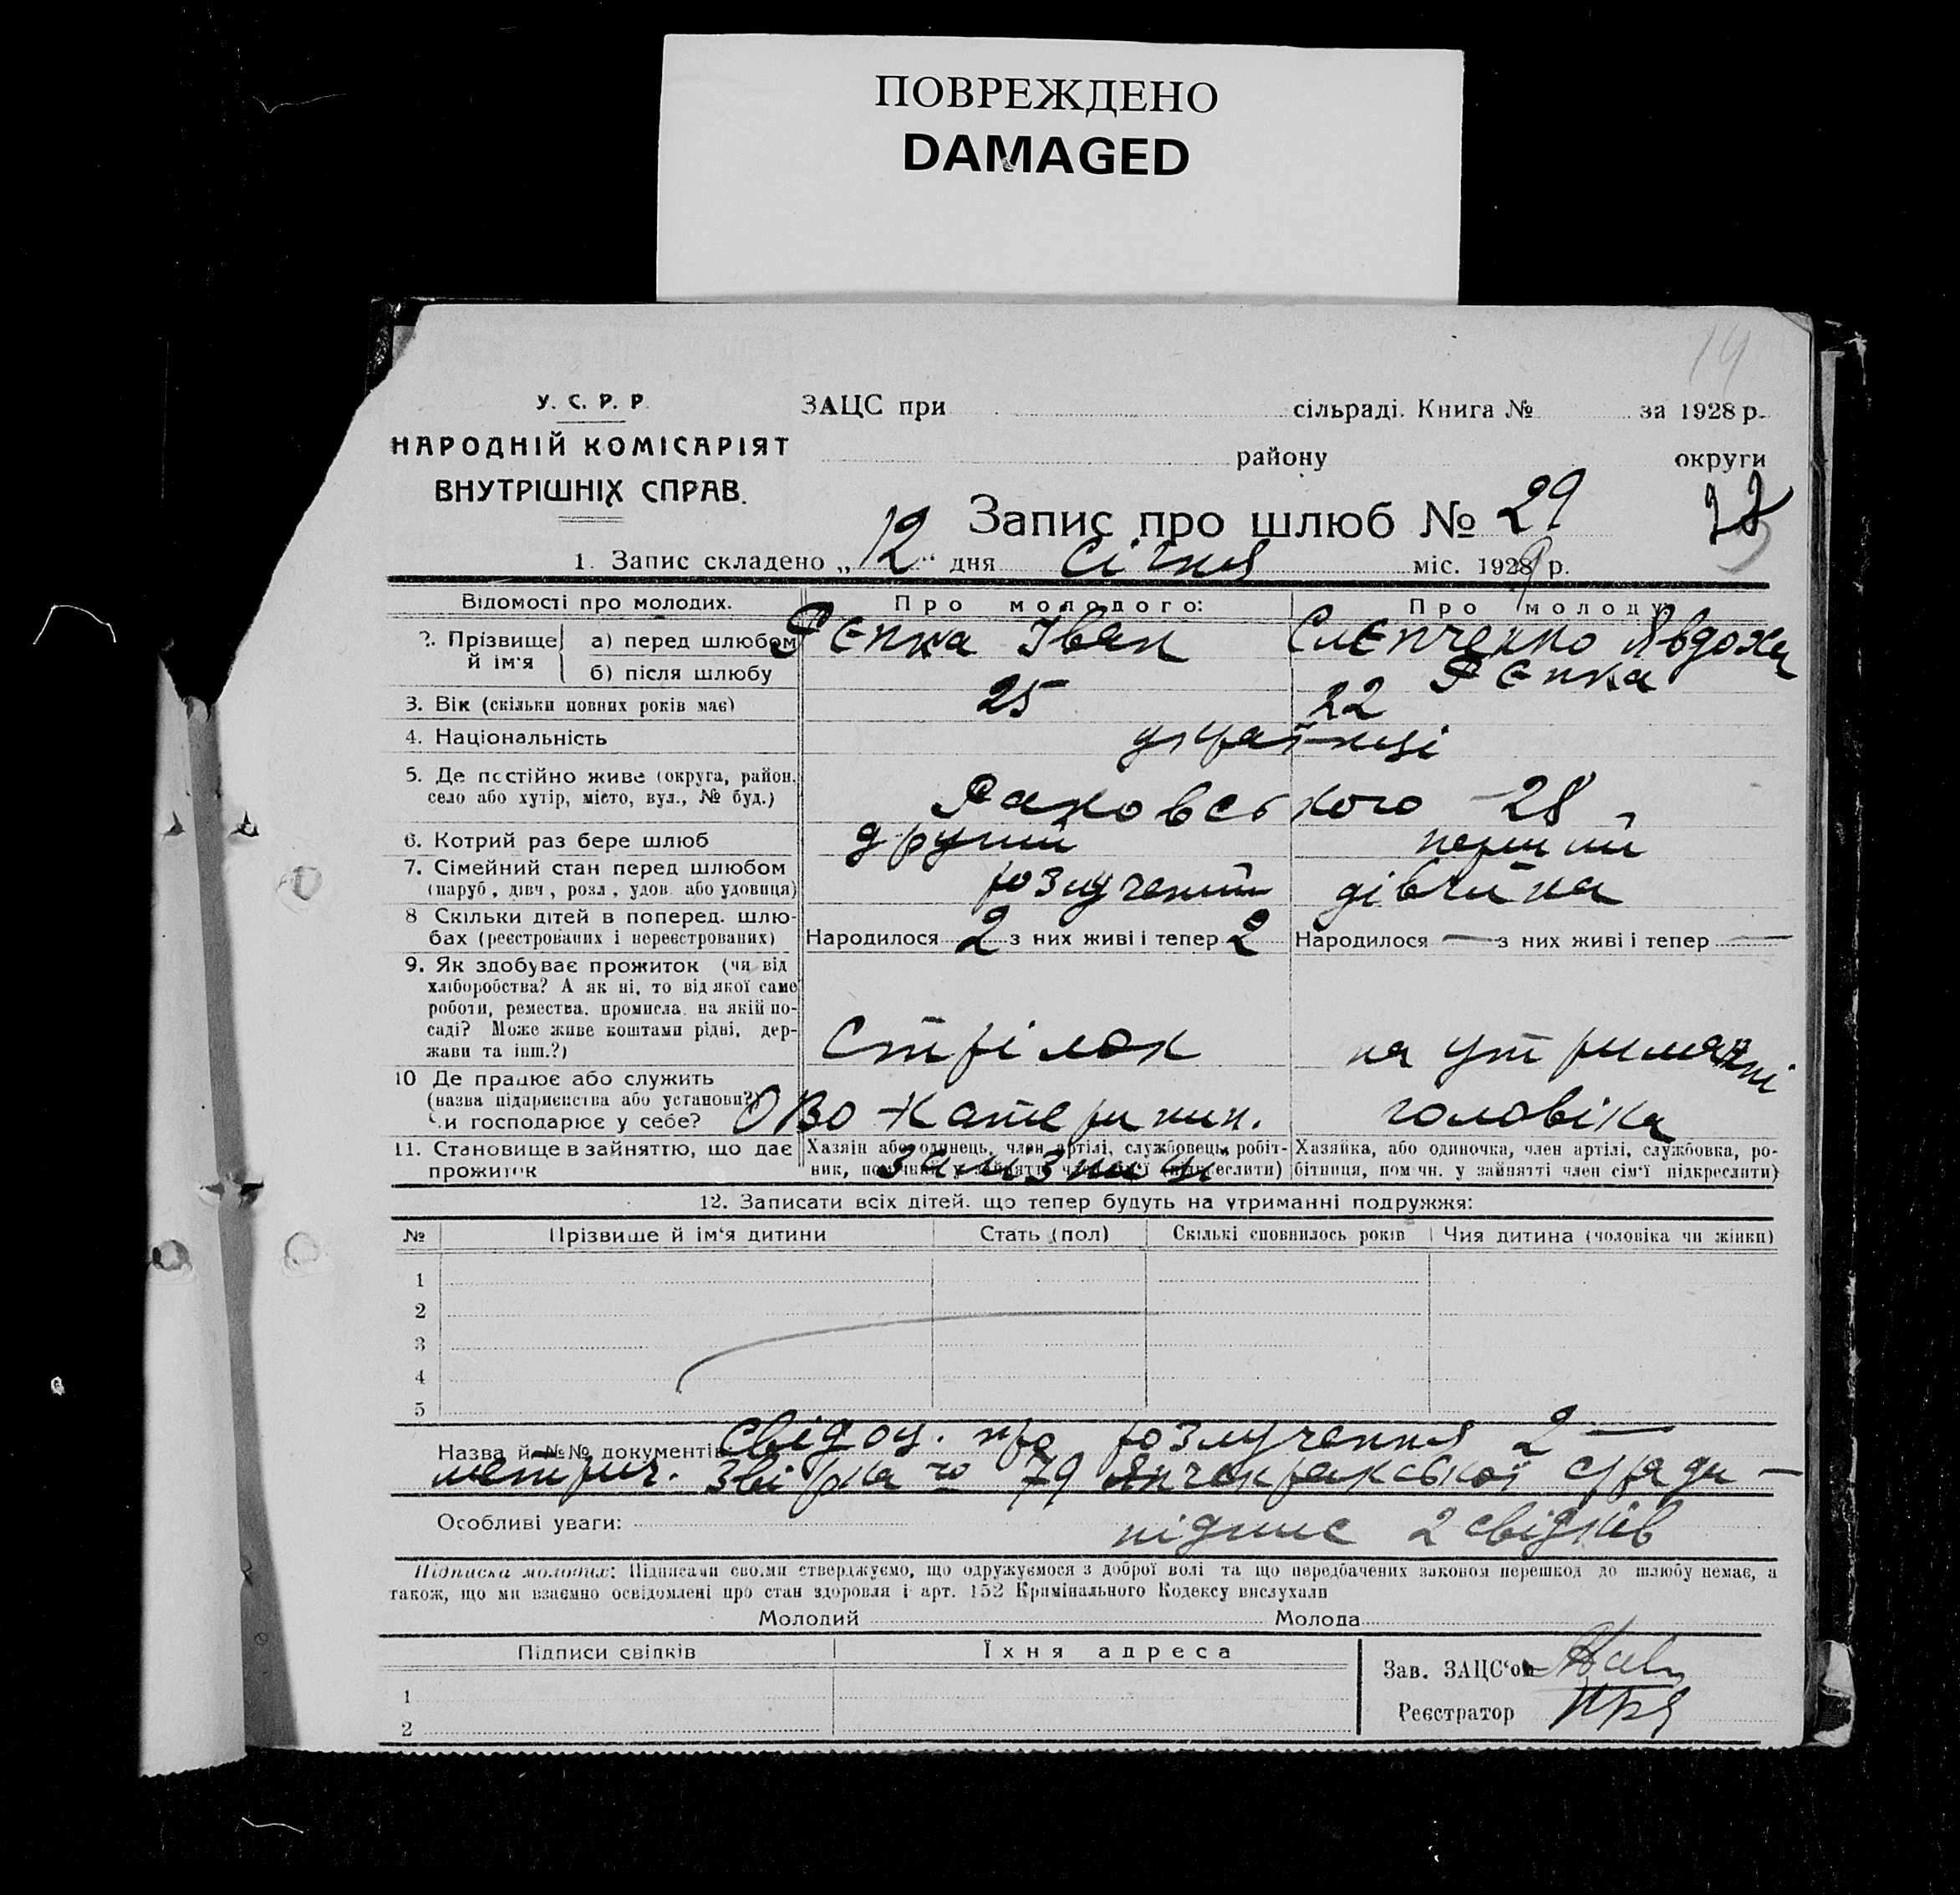 ПОВРЕЖДЕНО
DAMAGED
14
У. С. Р. Р.
НАРОДНІЙ КОМІСАРІЯТ
ВНУТРІШНІХ СПРАВ.
ЗАЦС при сільраді. Книга № за 1928 р.
району округи
Запис про шлюб № 29
1. Запис складено „12“ дня Січня міс. 1929 р.
Відомості про молодих. Про молодого: Про молоду:
2. Прізвище й ім'я а) перед шлюбом Рєпка Іван Слєпченко Явдоха
б) після шлюбу Рєпка
3. Вік (скільки повних років має) 25 22
4. Національність українці
5. Де постійно живе (округа, район,
село або хутір, місто, вул., № буд.) Раковського - 28
6. Котрий раз бере шлюб другий перший
7. Сімейний стан перед шлюбом
(паруб., дівч., розл., удов. або удовиця) розлучений дівчина
8 Скільки дітей в поперед. шлю-
бах (реєстрованих і нереєстрованих) Народилося 2 з них живі і тепер 2 Народилося — з них живі і тепер —
9. Як здобуває прожиток (чи від
хліборобства? А як ні, то від якої саме
роботи, ремества, промисла, на якій по-
саді? Може живе коштами рідні, дер-
жави та інш.?) Стрілок на утриманні
10 Де працює або служить
(назва підприємства або установи?)
Чи господарює у себе? ОВО Катеринин. чоловіка
залізниці
11. Становище в зайняттю, що дає
прожиток
Хазяїн або одинець, член артілі, службовець, робіт-
ник, помічник у зайнятті член сім'ї (підкреслити)
Хазяйка, або одиночка, член артілі, службовка, ро-
бітниця, помічн. у зайнятті член сім'ї підкреслити)
12. Записати всіх дітей, що тепер будуть на утриманні подружжя:
№ Прізвище й ім'я дитини Стать (пол) Скількі сповнилось років Чия дитина (чоловіка чи жінки)
1
2
3
4
5
Назва й №№ документів: свідоц. про розлучення 2 —
метрич. звірка 79 сради —
Особливі уваги: підпис 2 свідків
Підписка молодих: Підписами своїми стверджуємо, що одружуємося з доброї волі та що передбачених законом перешкод до шлюбу немає, а
також, що ми взаємно освідомлені про стан здоровля і арт. 152 Кримінального Кодексу вислухали
Молодий Молода
Підписи свідків Їхня адреса
Зав. ЗАЦС'ом
1
Реєстратор
2